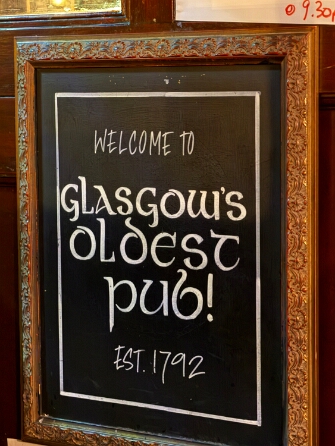 @ 9.30p
WELCOME TO
GLASGOW'S
OLDEST
PUB!
EST. 1792